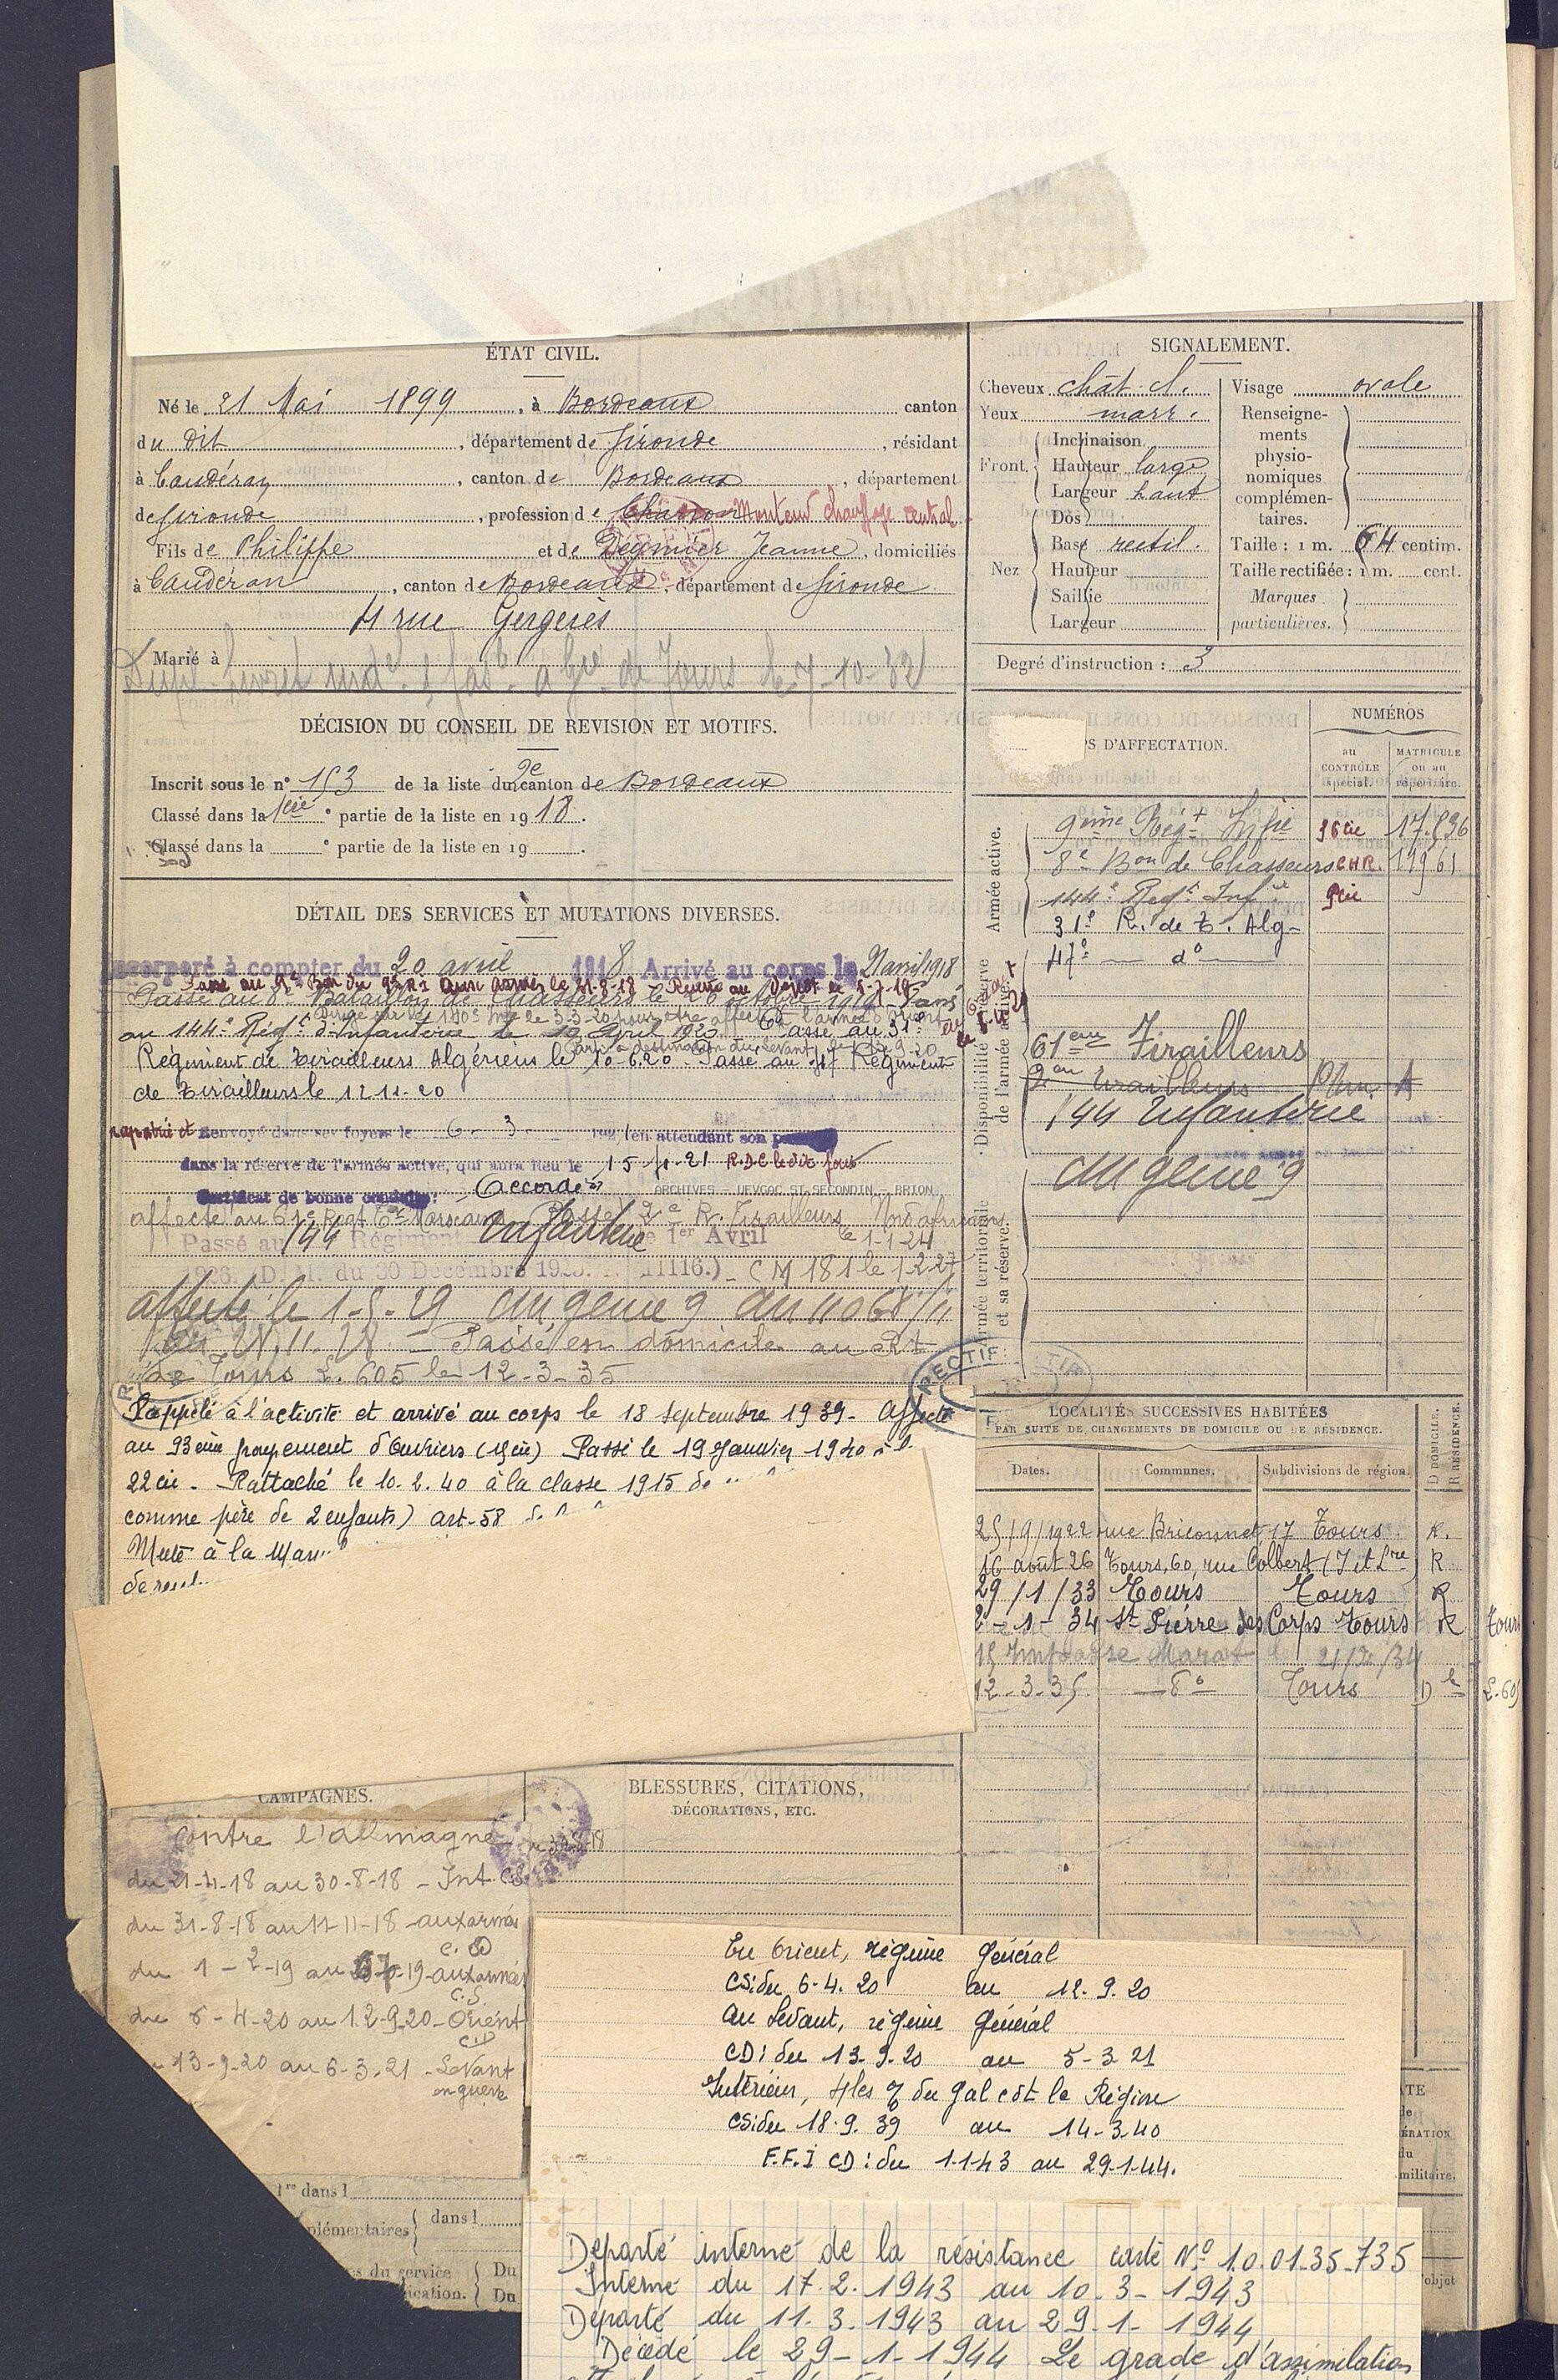 ÉTAT CIVIL.
Né le 21 Mai 1899, à Bordeaux canton
du dit, département de Gironde, résidant
à Caudéran, canton de Bordeaux, département
de Gironde, profession de Charron Monteur chauffage central
Fils de Philippe et de Deymier Jeanne, domiciliés
à Caudéran, canton de Bordeaux, département de Gironde
41 rue Gergerès
Marié à
de Tours le 7-10-32
SIGNALEMENT.
Cheveux chât. cl.
Yeux marr.
Front. Inclinaison
Hauteur large
Largeur haut
Nez Dos
Base rectil.
Hauteur
Saillie
Largeur
Visage ovale
Renseigne-
ments
physio-
nomiques
complémen-
taires.
Taille : 1 m. 64 centim.
Taille rectifiée : 1 m. cent.
Marques
particulières.
Degré d'instruction : 3
DÉCISION DU CONSEIL DE REVISION ET MOTIFS.
Inscrit sous le n° 153 de la liste du 2e canton de Bordeaux
Classé dans la 1ère partie de la liste en 1918.
Classé dans la e partie de la liste en 19 .
S D'AFFECTATION.
NUMÉROS
au
CONTRÔLE
spécial.
MATRICULE
ou au
répertoire.
Armée active.
9ème Regt Infie 36 cie 17.536
8e Bon de Chasseurs CHR. 11961
144e Regt Infie 9cie
31e R. de T. Alg-
47e — do —
Disponibilité et réserve
de l'armée active.
61eme Tirailleurs
2eme Tirailleurs
144 Infanterie
Armée territoriale
et sa réserve.
du génie 9
DÉTAIL DES SERVICES ET MUTATIONS DIVERSES.
Incorporé à compter du 20 avril 1918 Arrivé au corps le 21 avril 1918
Passé au 8e Bataillon de Chasseurs le 26 octobre 1919. Passé
au 144e Régt d'Infanterie le 10 April 1920. Passé au 31e
Régiment de tirailleurs Algériens le 10-6.20. Passé au 47e Régiment
de tirailleurs le 12-11-20
rapatrié et Renvoyé dans ses foyers le 6-3 1921 en attendant son
dans la réserve de l'armée active, qui aura lieu le 15-4-21 R.D.C le dit jour
Certificat de bonne conduite: Accordé
ARCHIVES - UEVGAC ST SECONDIN - BRION
affecté au 61e Regt Tt Marocains Passé 2e R. Tirailleurs Nord africains
Passé au 144 Régiment Infanterie le 1er Avril le 1-1-24
1926. (D. M. du 30 Décembre 1925. 11116.) CM 181 le 1-2-27
affecté le 1-5-29 du génie 9
28.11.28 - Passé en domicile au Rt
de Tours L. 605 le 12-3-35
RECTIF
Rappelé à l'activité et arrivé au corps le 18 septembre 1939- Affecté
au 93eme groupement d'Ouvriers (15cie) Passé le 19 Janvier 1940 à l
22 cie - Rattaché le 10.2.40 à la classe 1915 de
comme père de 2 enfants) art-58
Muté à la
LOCALITÉS SUCCESSIVES HABITÉES
PAR SUITE DE CHANGEMENTS DE DOMICILE OU DE RÉSIDENCE.
Dates. Communes. Subdivisions de région. D DOMICILE. R RÉSIDENCE.
25/9/1922 rue Briconnet 17 Tours. R.
16 août 26 Tours, 60, rue Colbert (I et Lre) R
29/1/33 Tours Tours R
2-1-34 St Pierre des Corps Tours R Tours
15 Impasse Marat 21/ /34
12-3-35 do Tours D le L.605
CAMPAGNES.
Contre l'Allemagne
du 21-4-18 au 30-8-18 - Int. CS
du 31-8-18 au 11-11-18 - aux armées
C.D
du 1-2-19 au 19 aux armées
C.S
du 6-4-20 au 12-9-20 - Orient
CD
13-9-20 au 6-3-21 - Levant
en guerre
BLESSURES, CITATIONS,
DÉCORATIONS, ETC.
En Orient, régime général
CS: du 6-4.20 au 12.9.20
Au Levant, régime général
CD: du 13-9-20 au 5-3 21
Intérieur, Gal cdt la Région
CS: du 18.9.39 au 14-3-40
F.F.I CD: du 1-1-43 au 29-1-44.
Déporté interné de la résistance carte No 10.01-35-735
Interné du 17.2.1943 au 10.3-1943
Déporté du 11.3.1943 au 29-1-1944
Décédé le 29-1-1944 Le grade d'assimilation
1re dans l
plémentaires dans l
es du service Du
ication. Du
ATE
de
ÉRATION
du
militaire.
objet